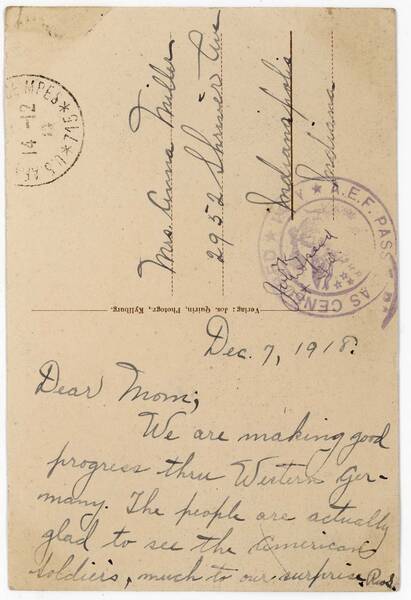 Mrs. Anna Miller
2952 Shriver Ave
Indianapolis
Indiana
14-12
* 715 *
A.E.F. PASSED AS CENSORED
Verlag: Jos. Quirin, Photogr., Kyllburg.
Dec. 7, 1918.
Dear Mom;
We are making good
progress thru Western Ger-
many. The people are actually
glad to see the American
soldiers, much to our surprise.